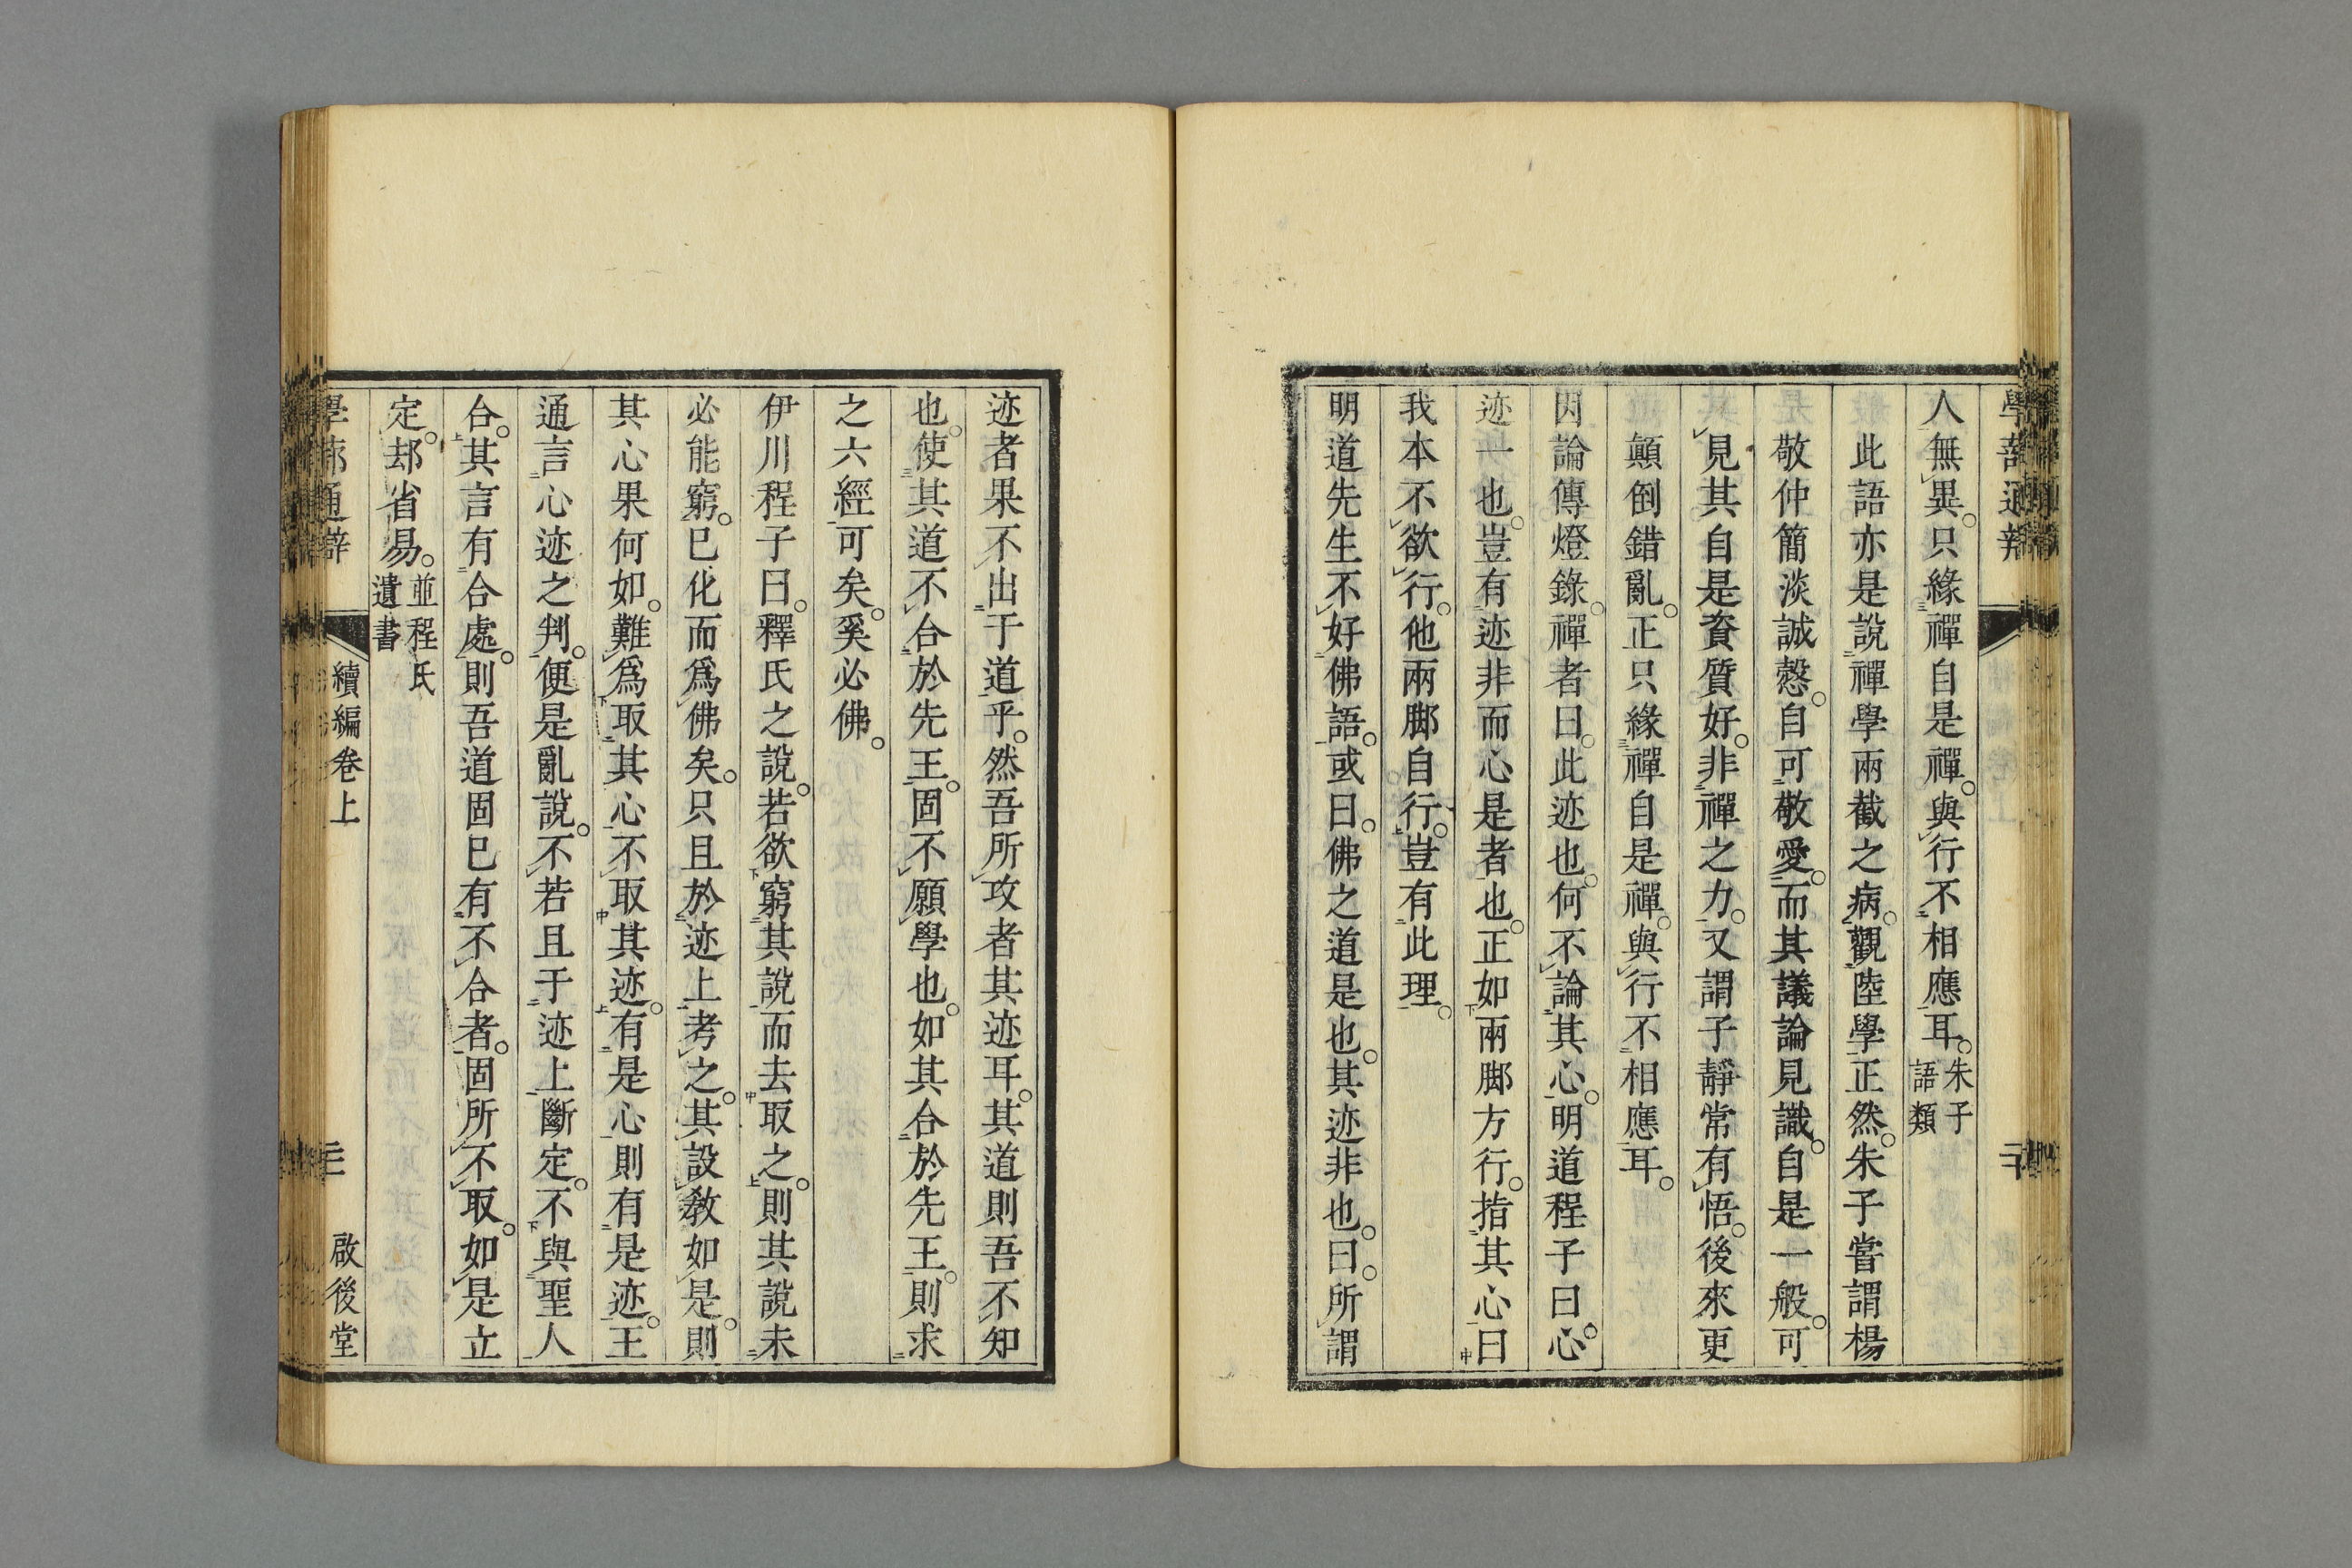 學蔀通辨
人無異。只緣禪自是禪。與行不相應耳。朱子語類
此語亦是說禪學兩截之病。觀陸學正然。朱子嘗謂楊
敬仲簡淡誠慤。自可敬愛。而其議論見識。自是一般。可
見其自是資質好。非禪之力。又謂子靜常有悟。後來更
顛倒錯亂。正只緣禪自是禪。與行不相應耳。
因論傳燈錄。禪者曰。此迹也。何不論其心。明道程子曰。心
迹一也。豈有迹非而心是者也。正如兩脚方行。指其心曰
我本不欲行。他兩脚自行。豈有此理。
明道先生不好佛語。或曰。佛之道是也。其迹非也。曰。所謂
迹者果不出于道乎。然吾所攻者其迹耳。其道則吾不知
也。使其道不合於先王。固不願學也。如其合於先王。則求
之六經可矣。奚必佛。
伊川程子曰。釋氏之說。若欲窮其說而去取之。則其說未
必能窮。已化而爲佛矣。只且於迹上考之。其設敎如是。則
其心果何如。難爲取其心不取其迹。有是心則有是迹。王
通言心迹之判。便是亂說。不若且于迹上斷定。不與聖人
合。其言有合處。則吾道固已有。不合者。固所不取。如是立
定。却省易。並程氏遺書
學蔀通辨
續編卷上
啟後堂